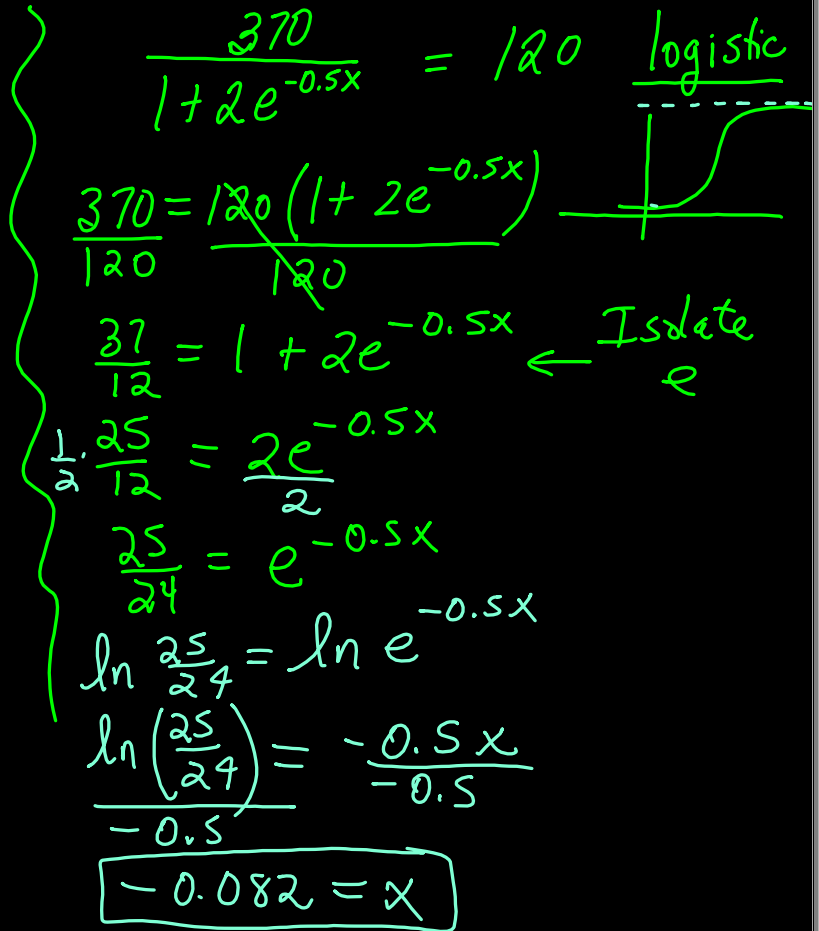 370/(1+2e^(-0.5x)) = 120
logistic
370/120 = 120(1+2e^(-0.5x))/120
37/12 = 1 + 2e^(-0.5x) ← Isolate e
1/2 · 25/12 = 2e^(-0.5x)/2
25/24 = e^(-0.5x)
ln 25/24 = ln e^(-0.5x)
ln(25/24)/-0.5 = -0.5x/-0.5
-0.082 = x